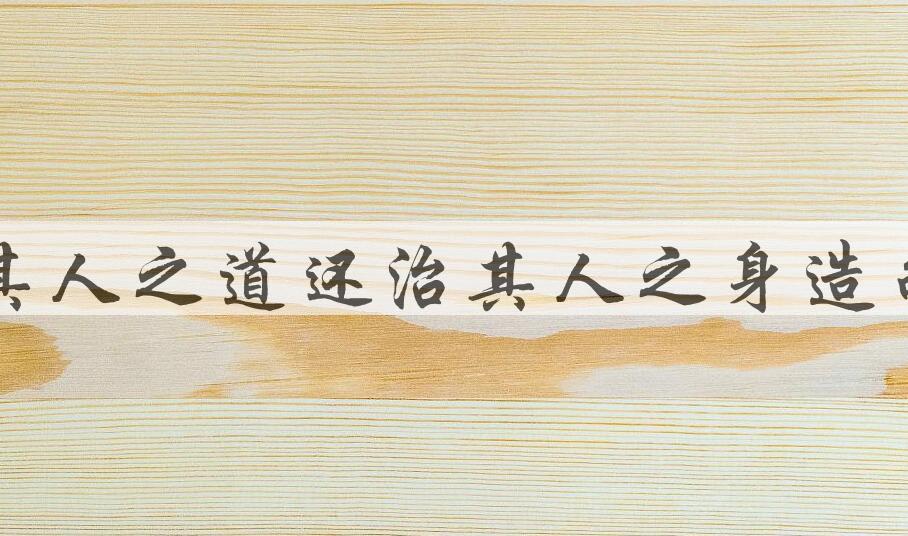 其人之道还治其人之身造